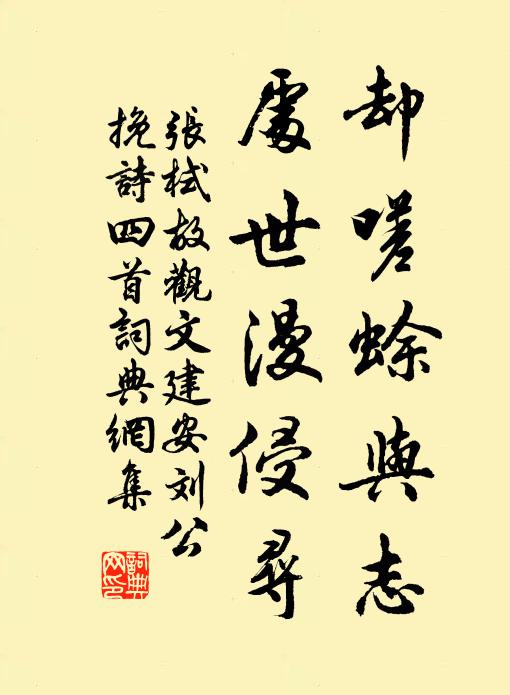 却嗟蜍與志
處世漫侵尋
張栻故觀文建安刘公
挽詩四首詞典網集
詞典
网印